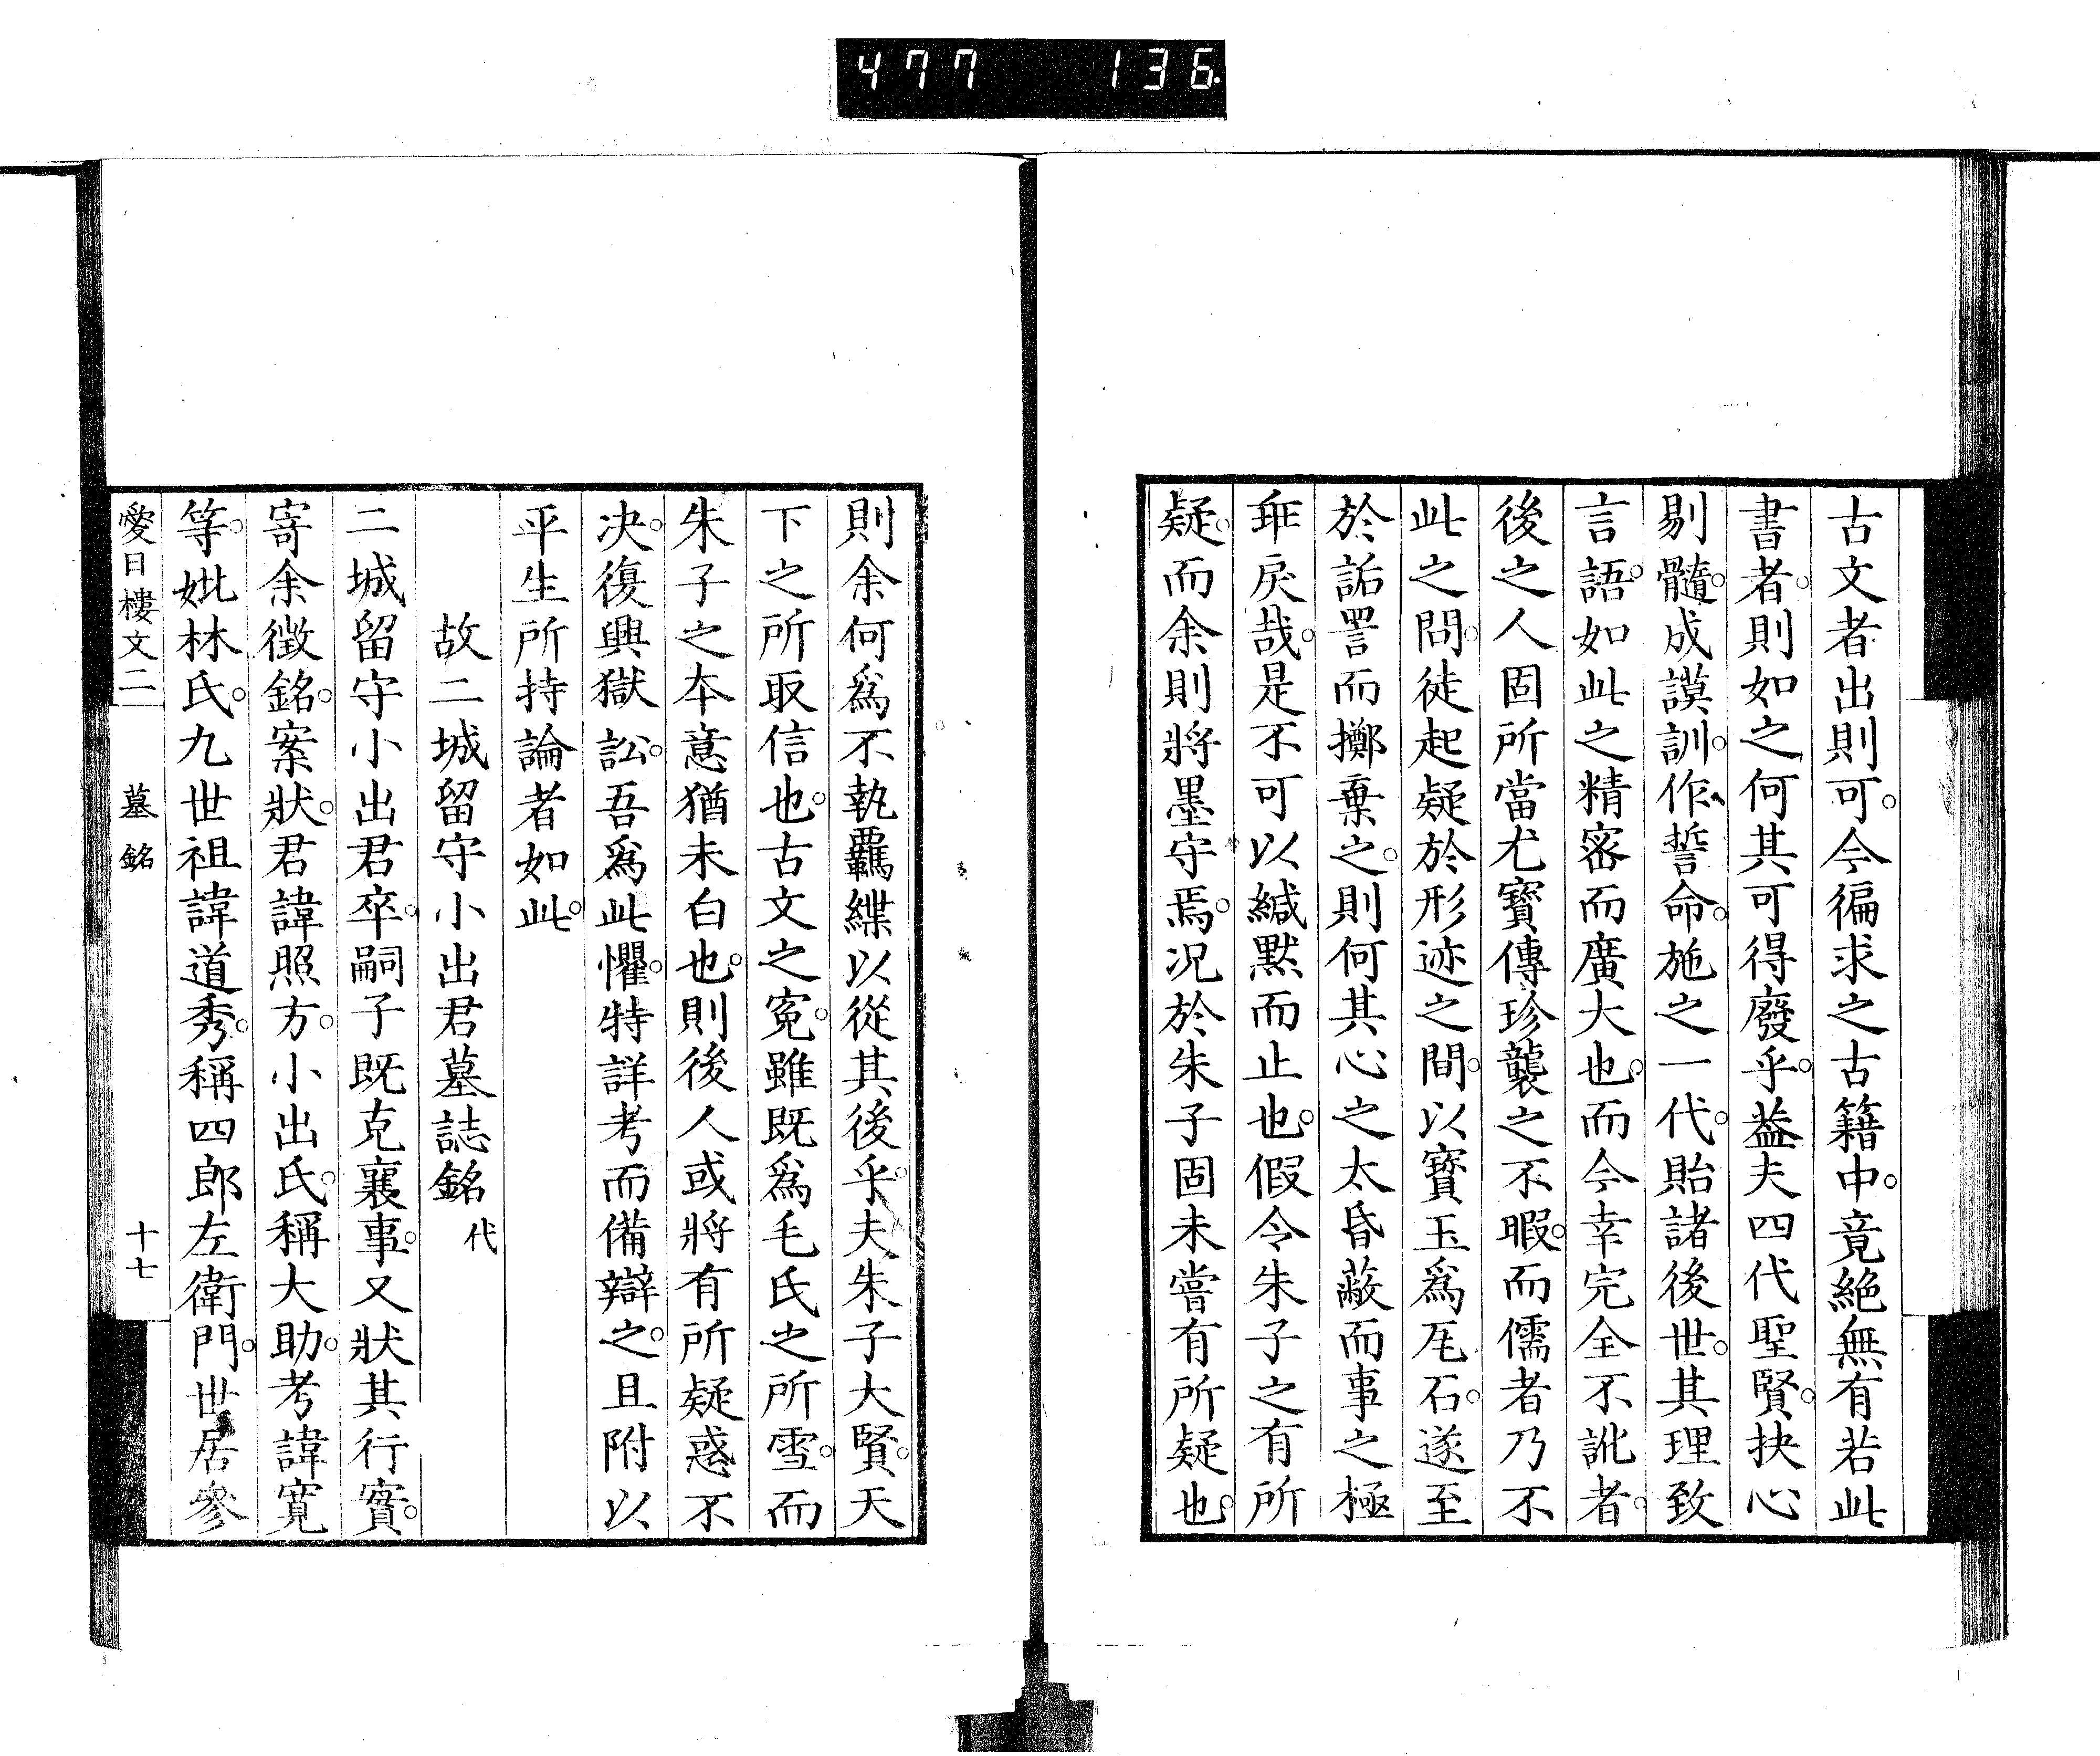 477 136
古文者出則可。今徧求之古籍中。竟絶無有若此
書者。則如之何其可得廢乎。葢夫四代聖賢。抉心
剔髓。成謨訓。作誓命。施之一代。貽諸後世。其理致
言語。如此之精密而廣大也。而今幸完全不訛者。
後之人固所當尤寶傳珍襲之不暇。而儒者乃不
此之問。徒起疑於形迹之間。以寶玉爲瓦石。遂至
於詬詈而擲棄之。則何其心之太昏蔽而事之極
乖戾哉。是不可以緘默而止也。假令朱子之有所
疑。而余則將墨守焉。况於朱子固未嘗有所疑也。
則余何爲不執羈緤以從其後乎。夫朱子大賢。天
下之所取信也。古文之寃。雖既爲毛氏之所雪。而
朱子之本意猶未白也。則後人或將有所疑惑不
决。復興獄訟。吾爲此懼。特詳考而備辯之。且附以
平生所持論者如此。
故二城留守小出君墓誌銘 代
二城留守小出君卒。嗣子既克襄事。又狀其行實。
寄余徵銘。案狀。君諱照方。小出氏。稱大助。考諱寛
等。妣林氏。九世祖諱道秀。稱四郎左衛門。世居參
愛日樓文二 墓銘 十七